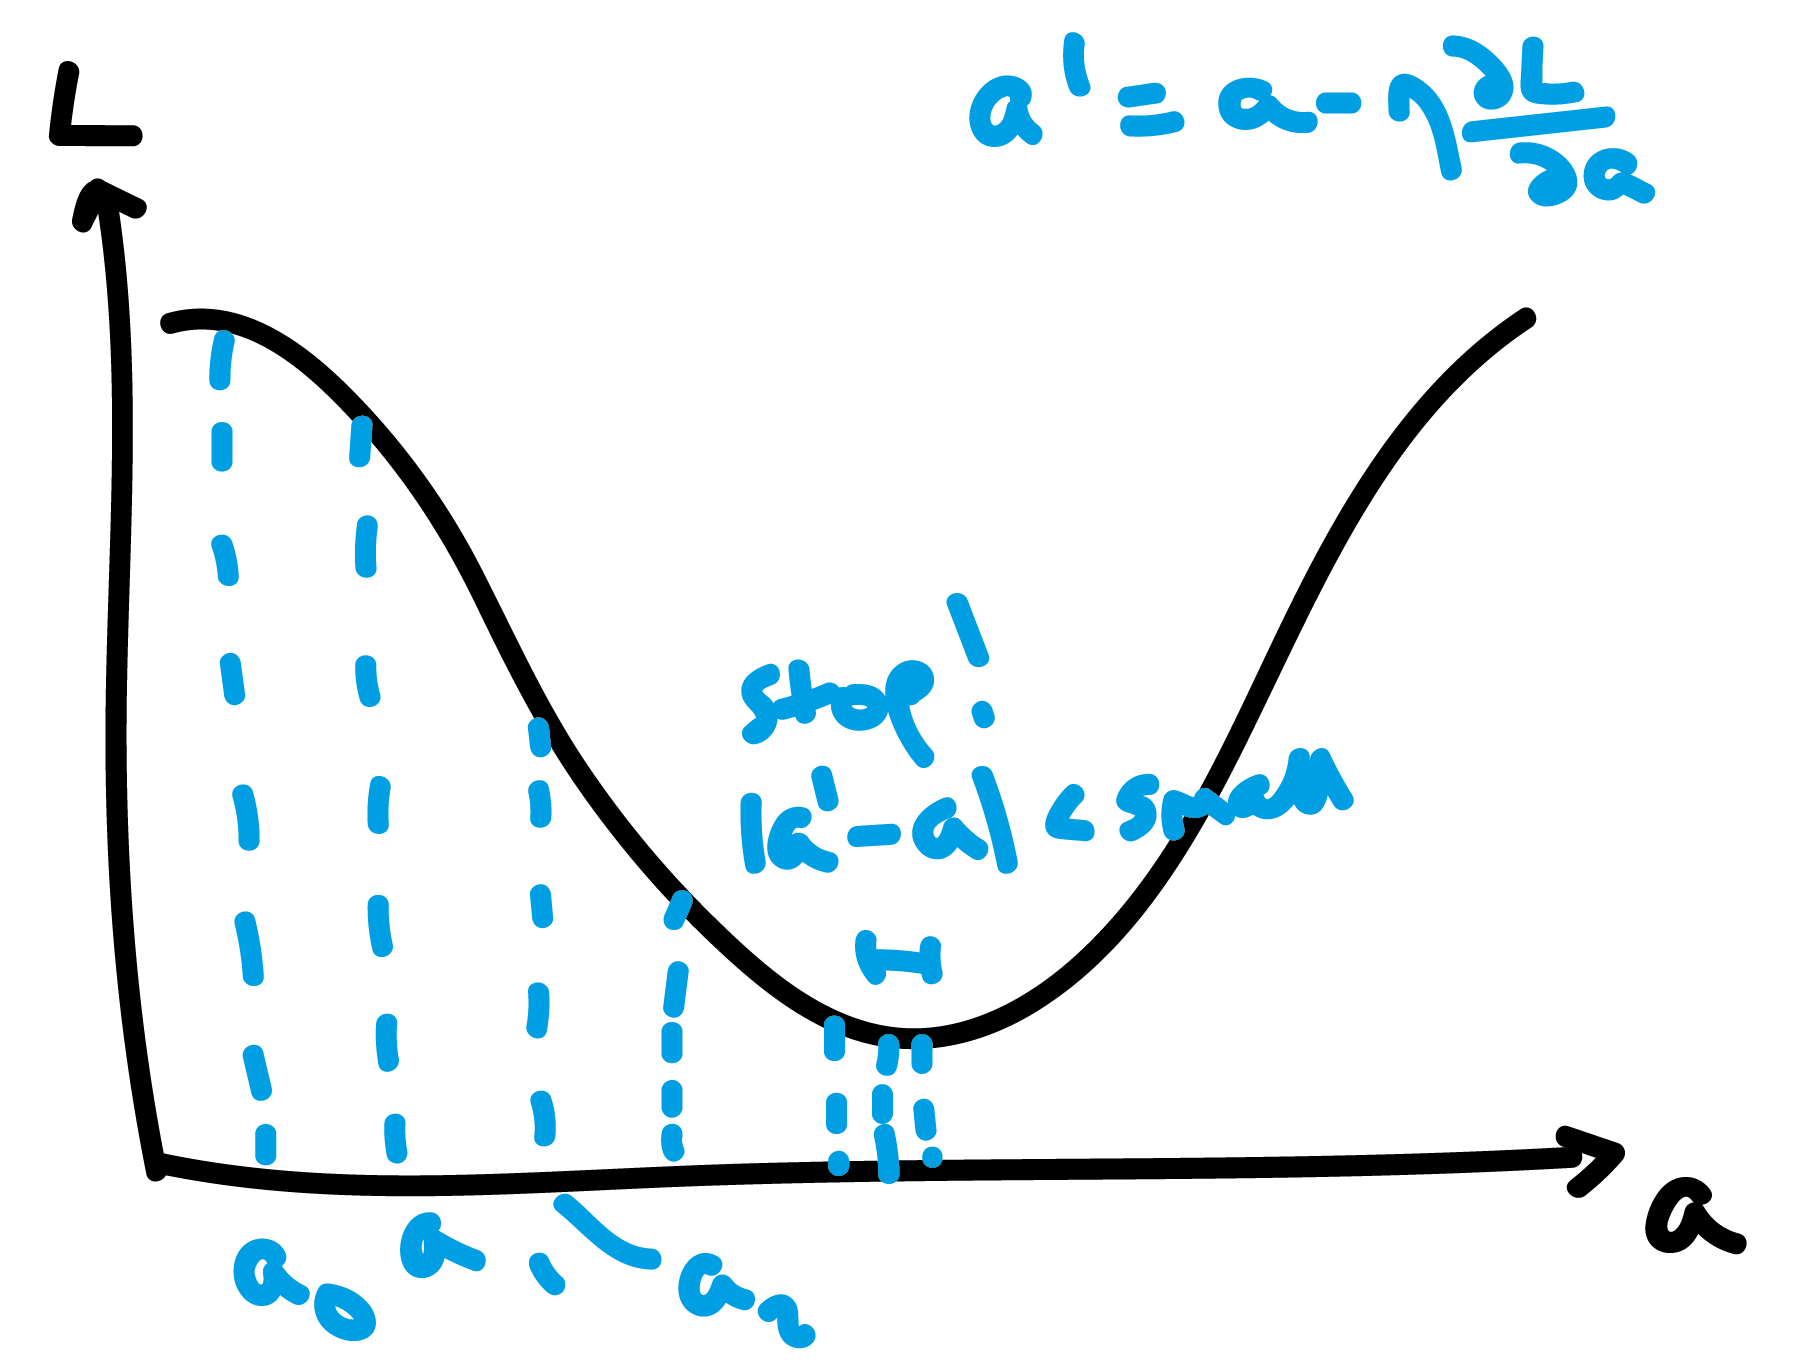 L
a' = a - η ∂L/∂a
stop!
|a' - a| < small
a₀ a₁ a₂
a